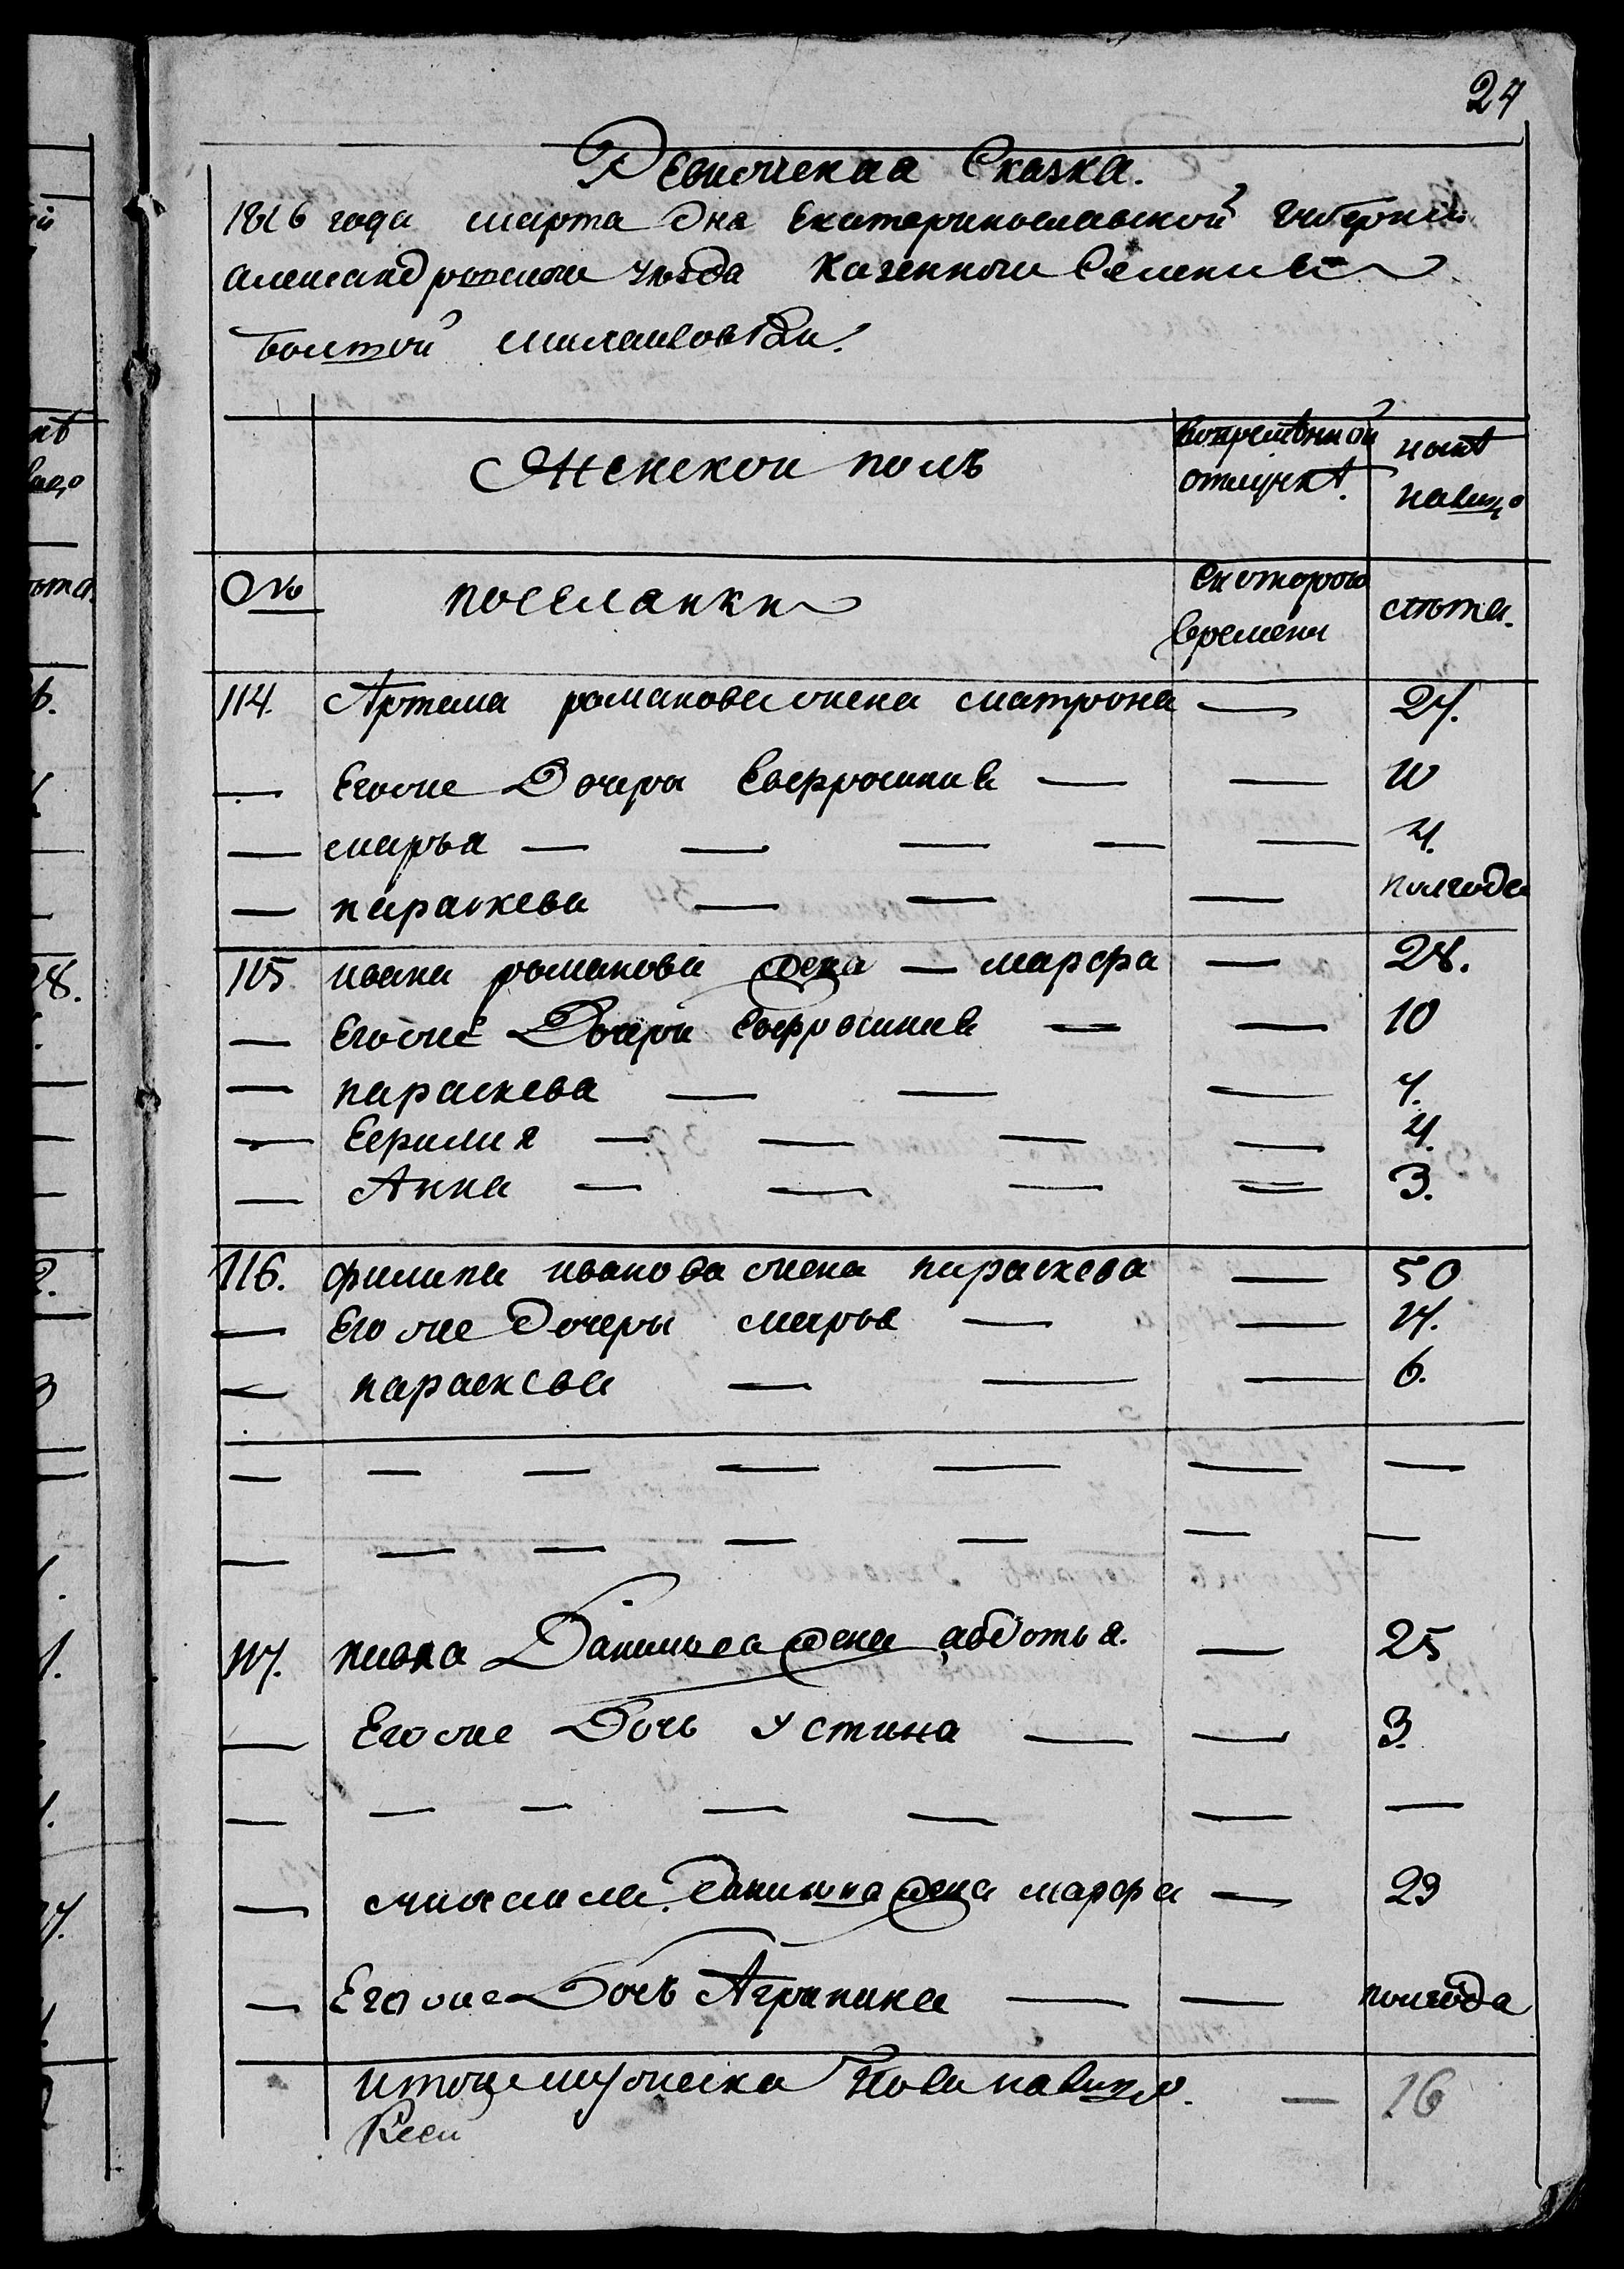 27
Ревижская Сказка.
1816 года марта дня Екатеринославской Губернии
Александровского уезда Казенного Селения
Болшой Михаиловки.
Женской полъ
вовременной отлучкѣ.
нынѣ налицо
№
поселанки
Скоторого времени
лѣта.
114. Артема романова жена матрона — 27.
— Егоже Дочери Евфросиния — — 10
— марья — — — — — 4.
— параскева — — — полгода
115 ивана романова жена — марфа — 28.
— Егоже Дочери Евфросиния — — 10
— параскева — — — 7.
— Еврилия — — — — 4.
— Анна — — — — 3.
116. филипа иванова жена параскева — 50
— Егоже Дочеры марья — — 14.
— параскева — — — 6.
— — — — — — —
— — — — — — —
117. павла Данилова жена авдотья. — 25
— Егоже Дочь Устина — — 3.
— — — — — — —
— михаила Данилова жена марфа — 29
— Егоже Дочь Агрипина — — полгода
Итого женска Пола налицо. — 16